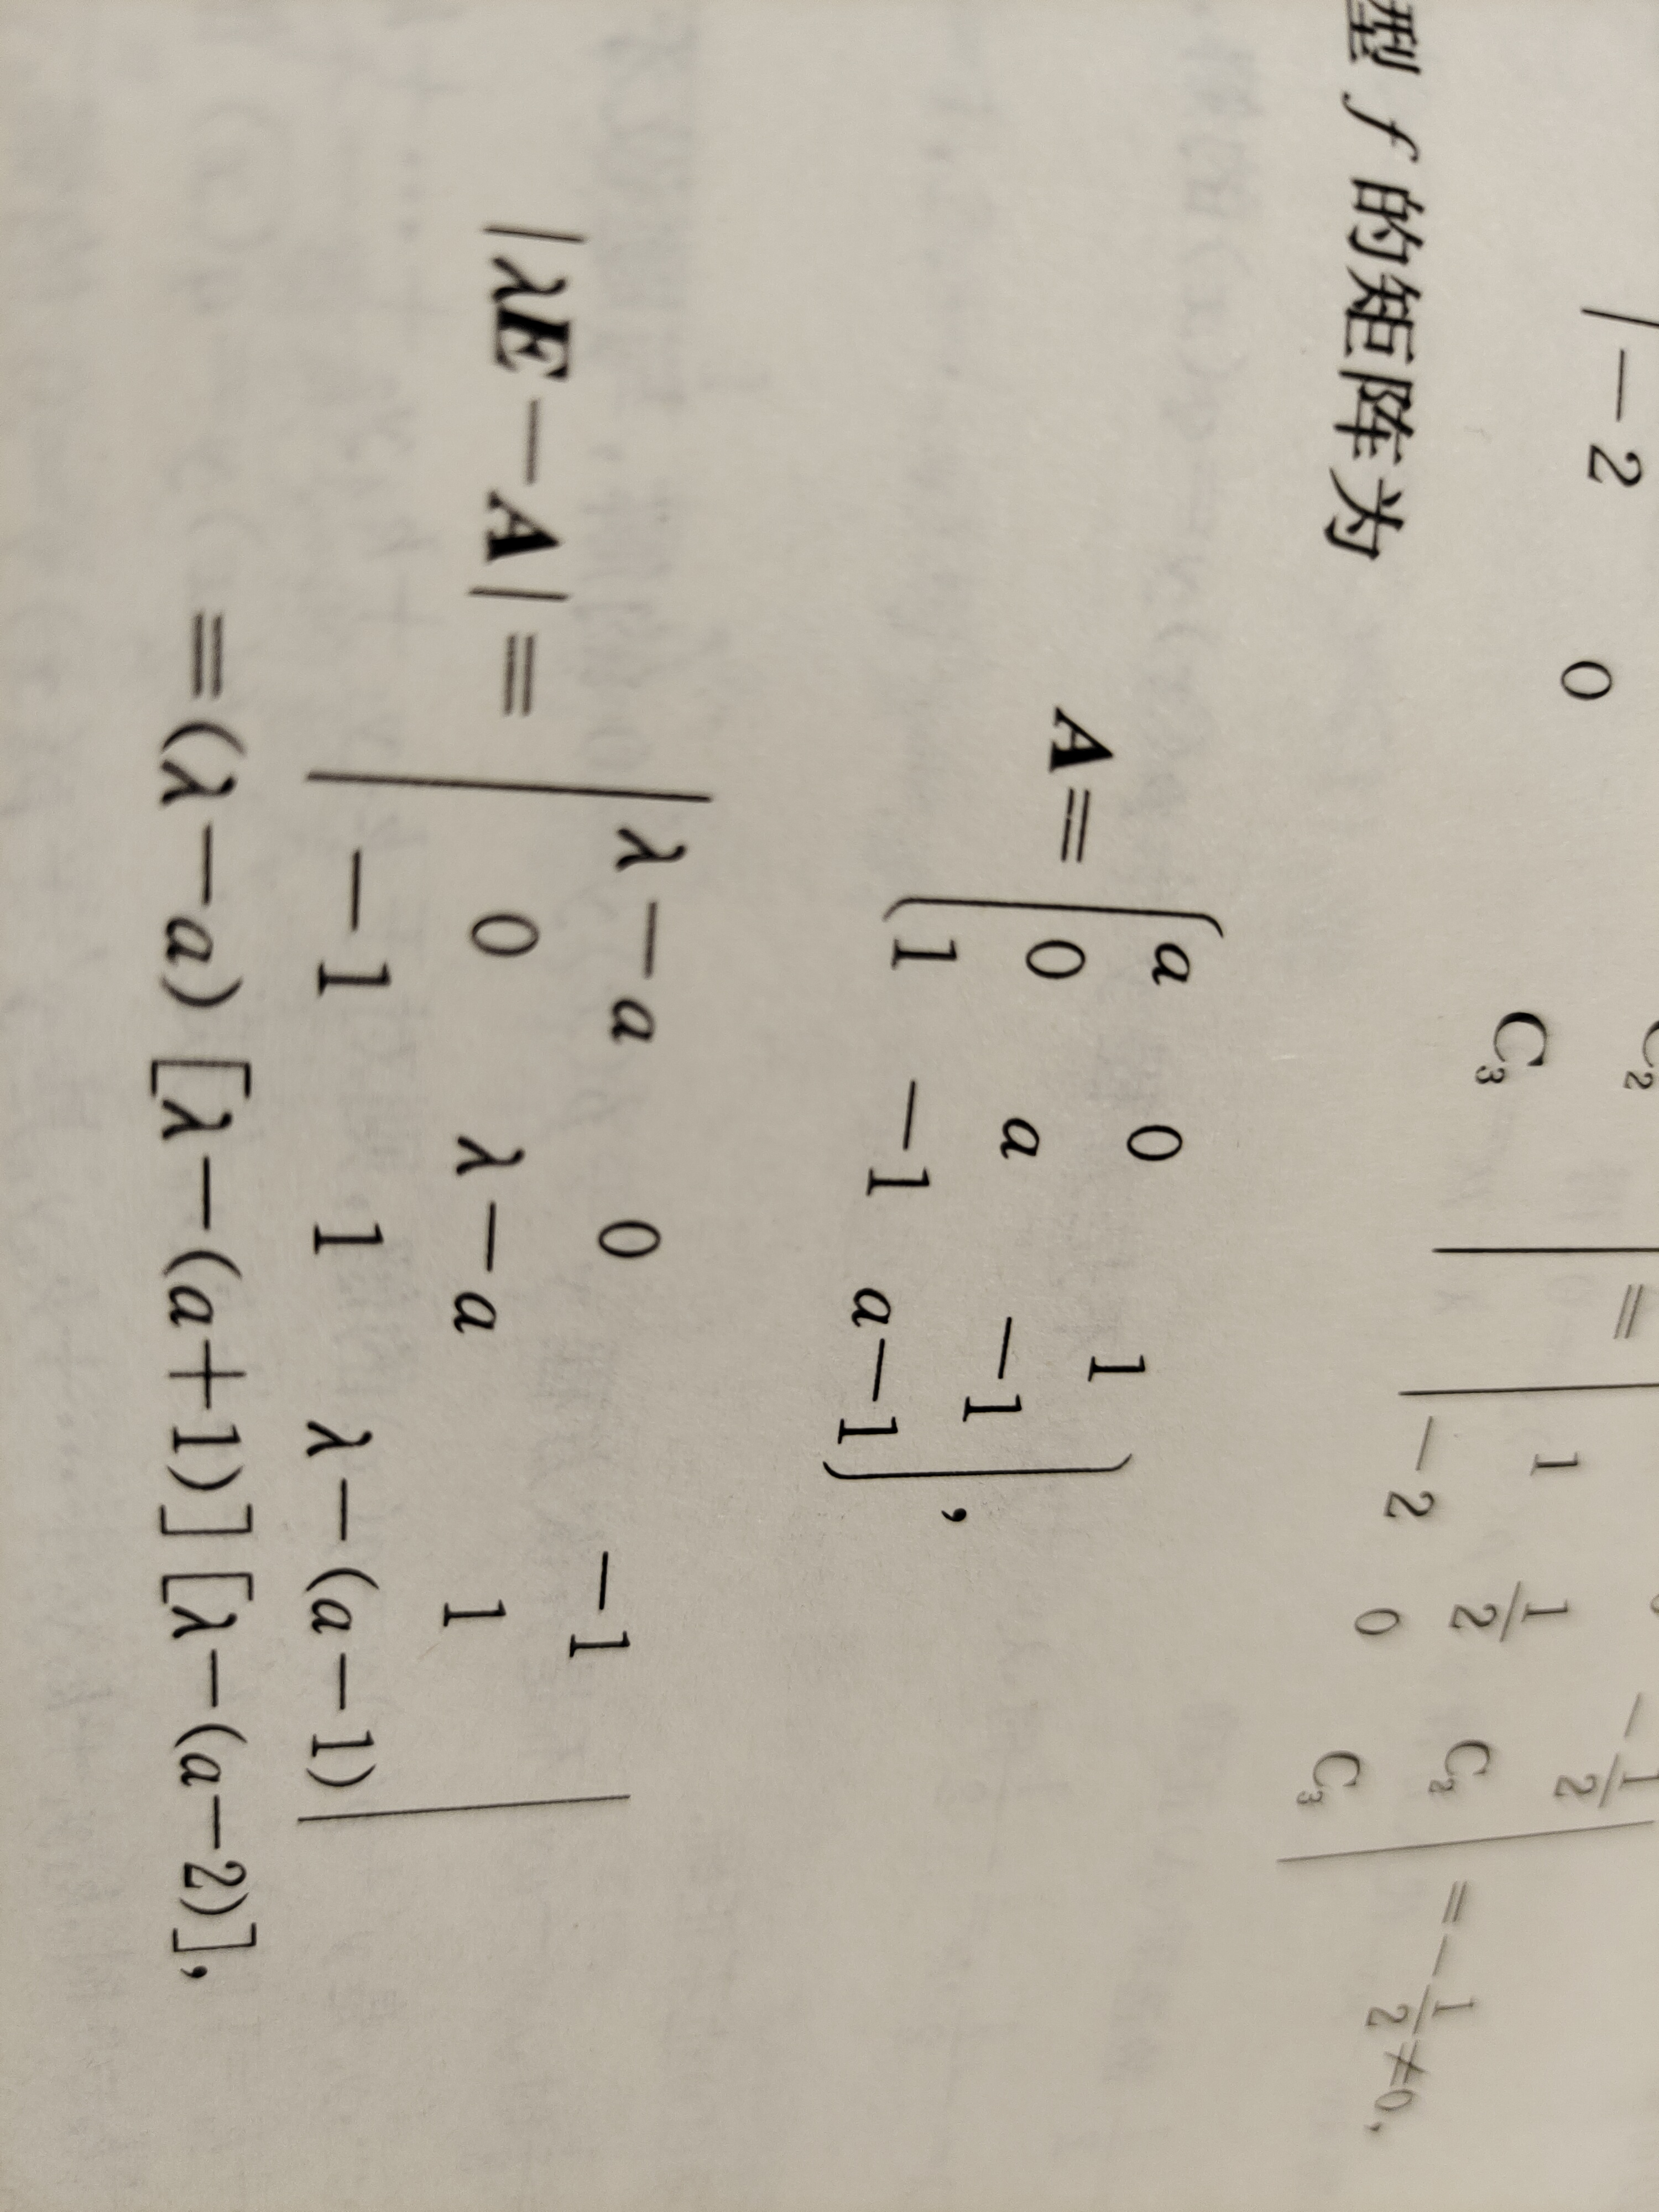 | -2 0 C₂ C₃ | = | 1 1/2 -1/2 C₂ -2 0 C₃ | = -1/2 ≠ 0,
型 f 的矩阵为
A = ( a 0 1
0 a -1
1 -1 a-1 ),
|λE-A| = | λ-a 0 -1
0 λ-a 1
-1 1 λ-(a-1) |
=(λ-a)[λ-(a+1)][λ-(a-2)],